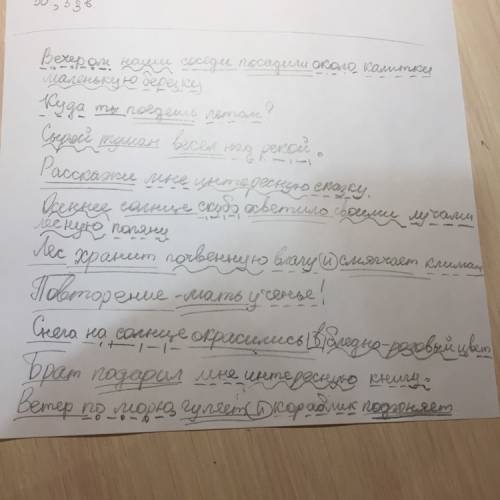 Вечером наши соседи посадили около калитки
маленькую берёзку
Куда ты поедешь летом?
Сырой туман весел над рекой.
Расскажи мне интересную сказку.
Осеннее солнце скупо осветило своими лучами
лесную поляну
Лес хранит почвенную влагу и смягчает климат
Повторение - мать ученья!
Снега на солнце окрасились в бледно-розовый цвет
Брат подарил мне интересную книгу.
Ветер по морю гуляет и кораблик подгоняет